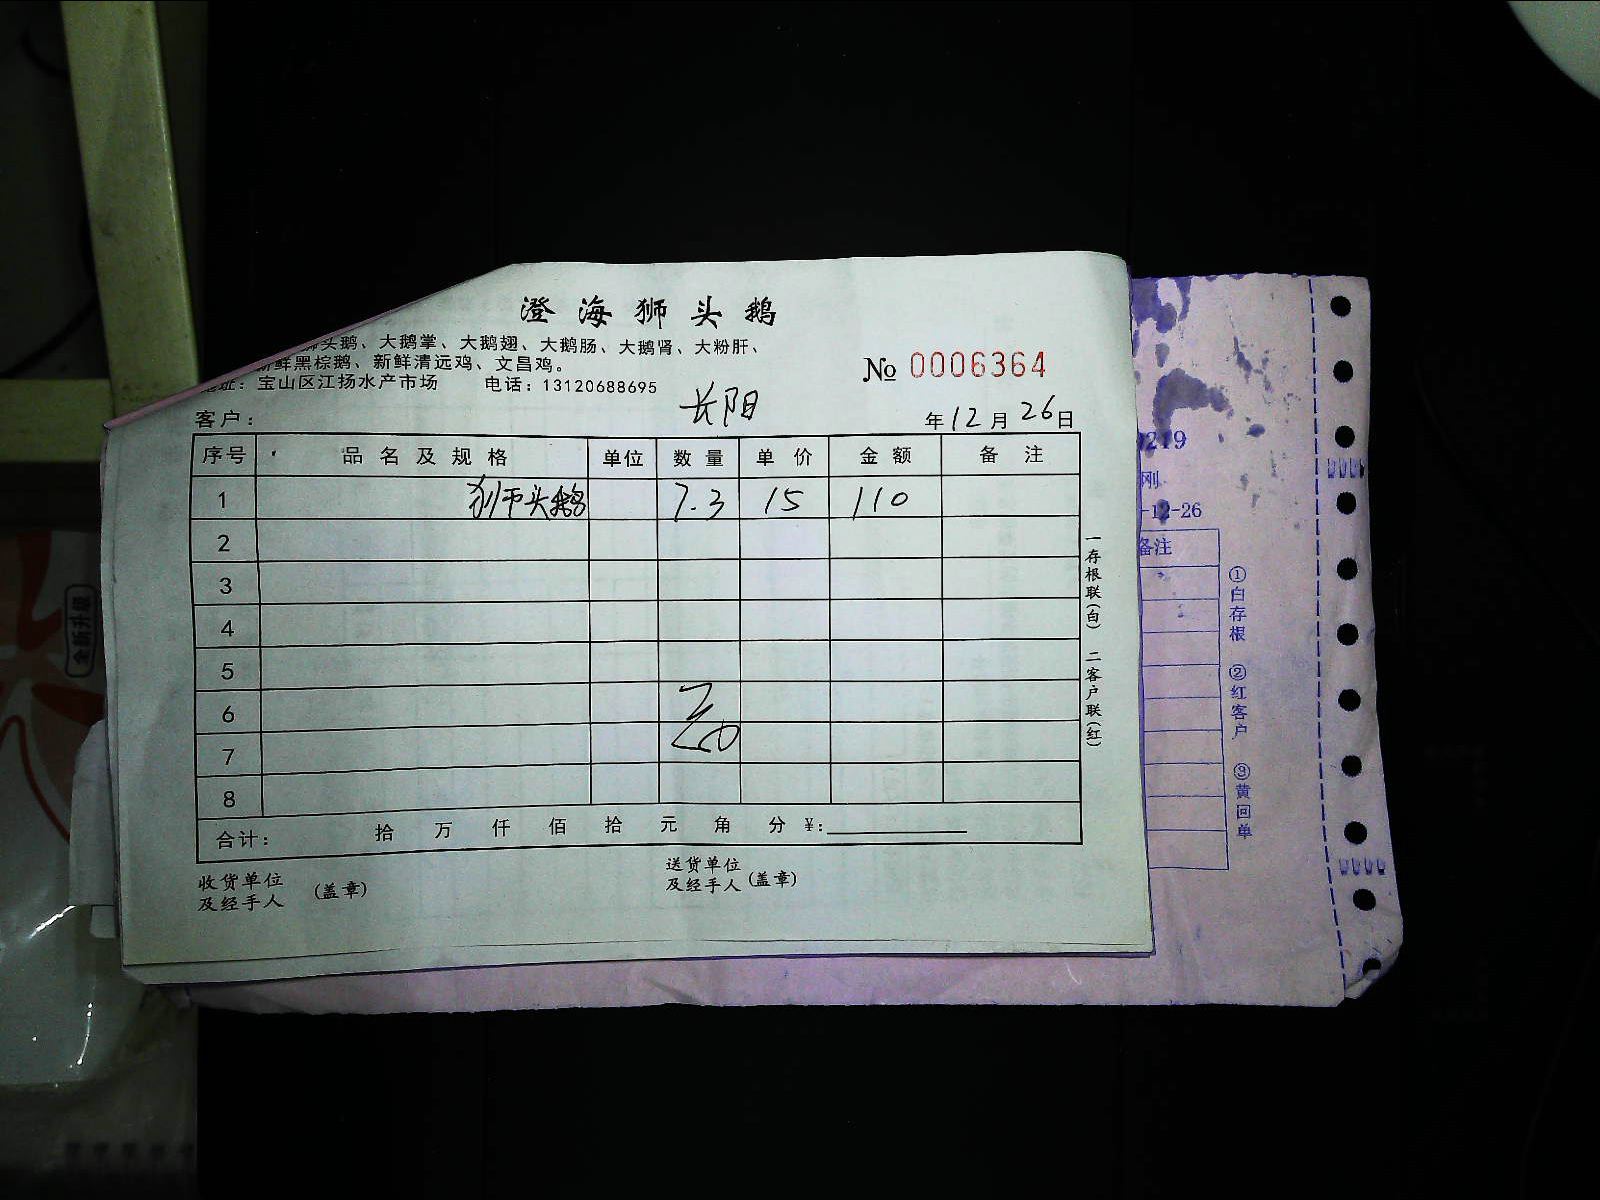 澄海狮头鹅
狮头鹅、大鹅掌、大鹅翅、大鹅肠、大鹅肾、大粉肝、
新鲜黑棕鹅、新鲜清远鸡、文昌鸡。
地址：宝山区江扬水产市场 电话：13120688695
№ 0006364
客户： 长阳 年12月26日
序号 品名及规格 单位 数量 单价 金额 备注
1 狮头鹅 7.3 15 110
2
3
4
5
6
7
8
合计： 拾 万 仟 佰 拾 元 角 分 ¥:
收货单位 (盖章) 送货单位 (盖章)
及经手人 及经手人
一存根联(白) 二客户联(红)
0219
刚
-12-26
备注
①白存根 ②红客户 ③黄回单
全新升级